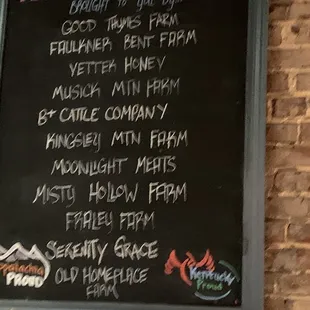 BROUGHT TO YOU BY
GOOD THYMES FARM
FAULKNER BENT FARM
YETTER HONEY
MUSICK MTN FARM
B+ CATTLE COMPANY
KINGSLEY MTN FARM
MOONLIGHT MEATS
MISTY HOLLOW FARM
FRALEY FARM
SERENITY GRACE
OLD HOMEPLACE
FARM
Appalachia
PROUD
Kentucky
Proud